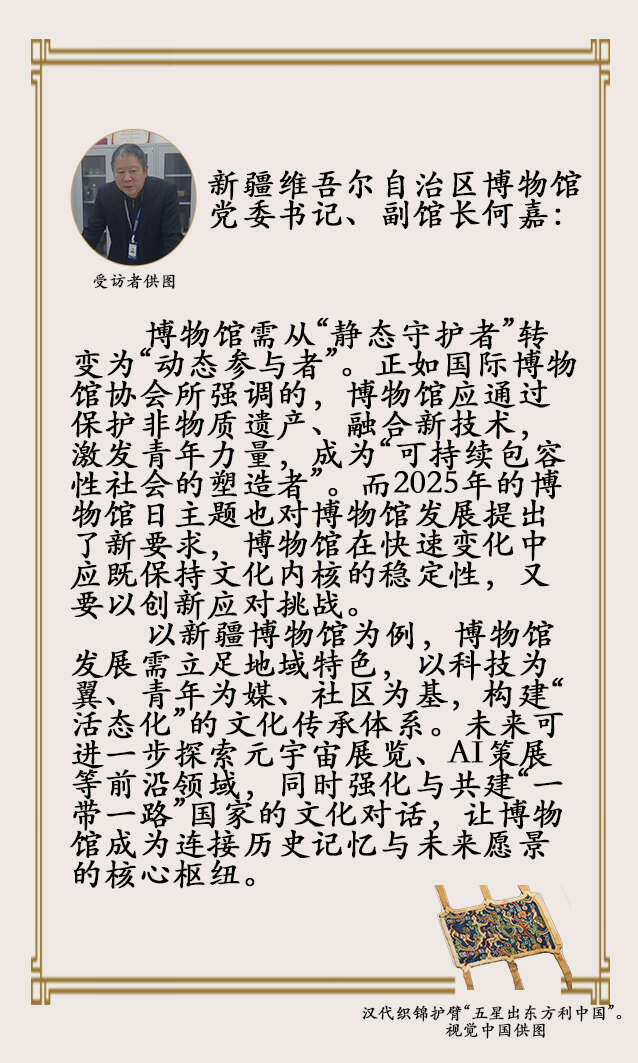 新疆维吾尔自治区博物馆
党委书记、副馆长何嘉：
受访者供图
博物馆需从“静态守护者”转
变为“动态参与者”。正如国际博物
馆协会所强调的，博物馆应通过
保护非物质遗产、融合新技术，
激发青年力量，成为“可持续包容
性社会的塑造者”。而2025年的博
物馆日主题也对博物馆发展提出
了新要求，博物馆在快速变化中
应既保持文化内核的稳定性，又
要以创新应对挑战。
以新疆博物馆为例，博物馆
发展需立足地域特色，以科技为
翼、青年为媒、社区为基，构建“
活态化”的文化传承体系。未来可
进一步探索元宇宙展览、AI策展
等前沿领域，同时强化与共建“一
带一路”国家的文化对话，让博物
馆成为连接历史记忆与未来愿景
的核心枢纽。
汉代织锦护臂“五星出东方利中国”。
视觉中国供图